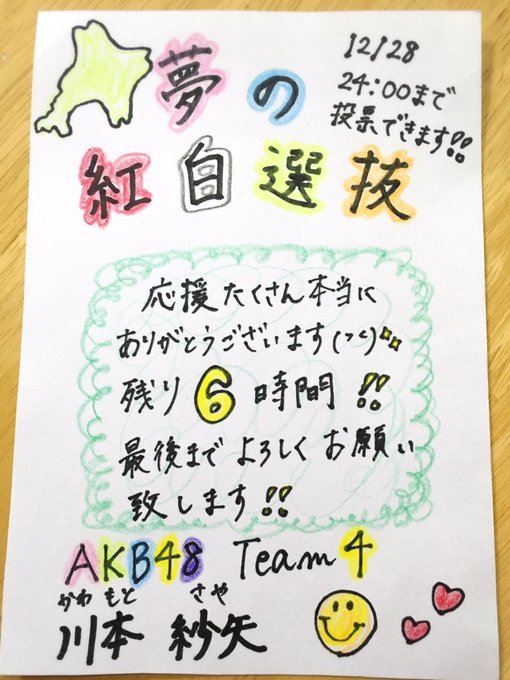 夢の
紅白選抜
12/28
24:00まで
投票できます!!
応援たくさん本当に
ありがとうございます(つく)
残り6時間!!
最後までよろしくお願い
致します!!
AKB48 Team4
かわもと さや
川本 紗矢